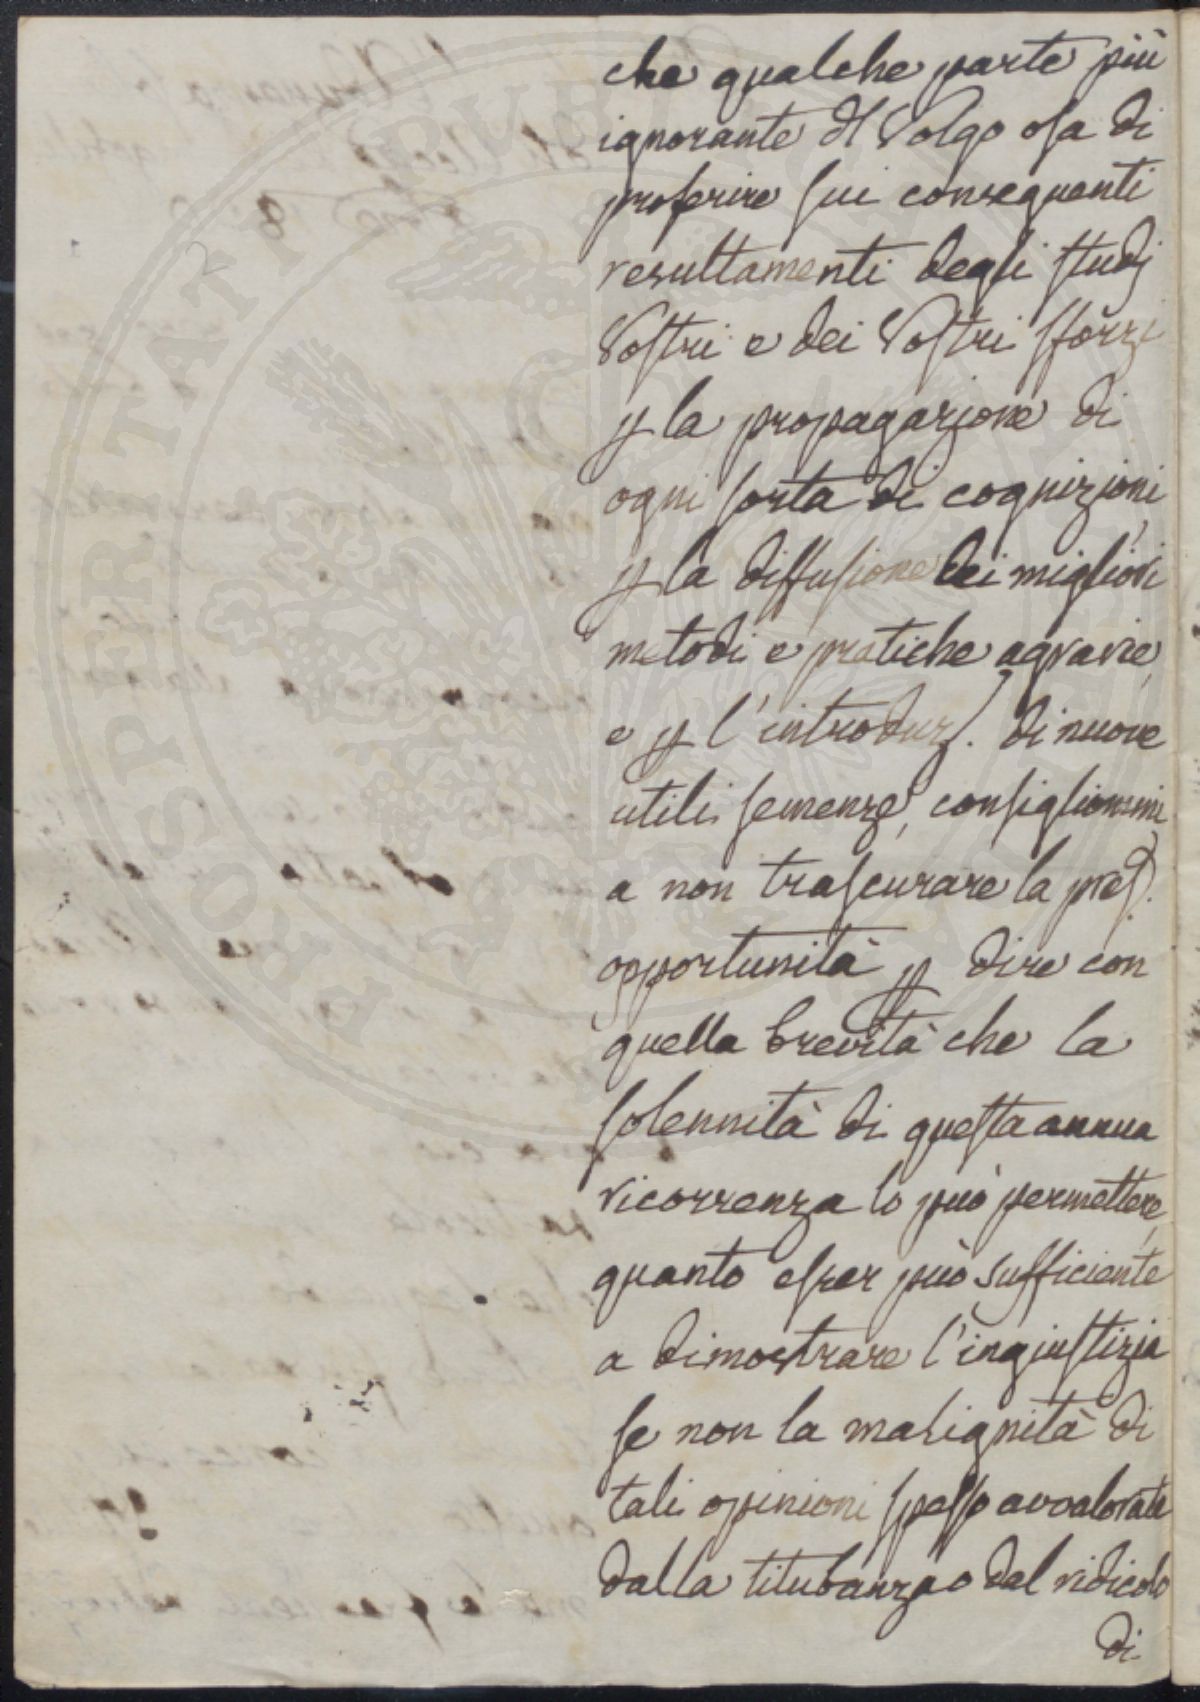 che qualche parte più
ignorante dl Volgo osa di
proferire sui conseguenti
resultamenti degli studj
Vostri e dei Vostri sforzi
p la propagazione di
ogni sorta di cognizioni,
p la diffusione dei migliori
metodi e pratiche agrarie,
e p l'introduz. di nuove
utili semenze, consiglionmi
a non trascurare la pres.
opportunità p dire con
quella brevità che la
solennità di questa annua
ricorrenza lo può permettere,
quanto esser può sufficiente
a dimostrare l'ingiustizia
se non la malignità di
tali opinioni spesso avvalorate
dalla titubanza o dal ridicolo
di
PROSPERITATI PUBLICAE